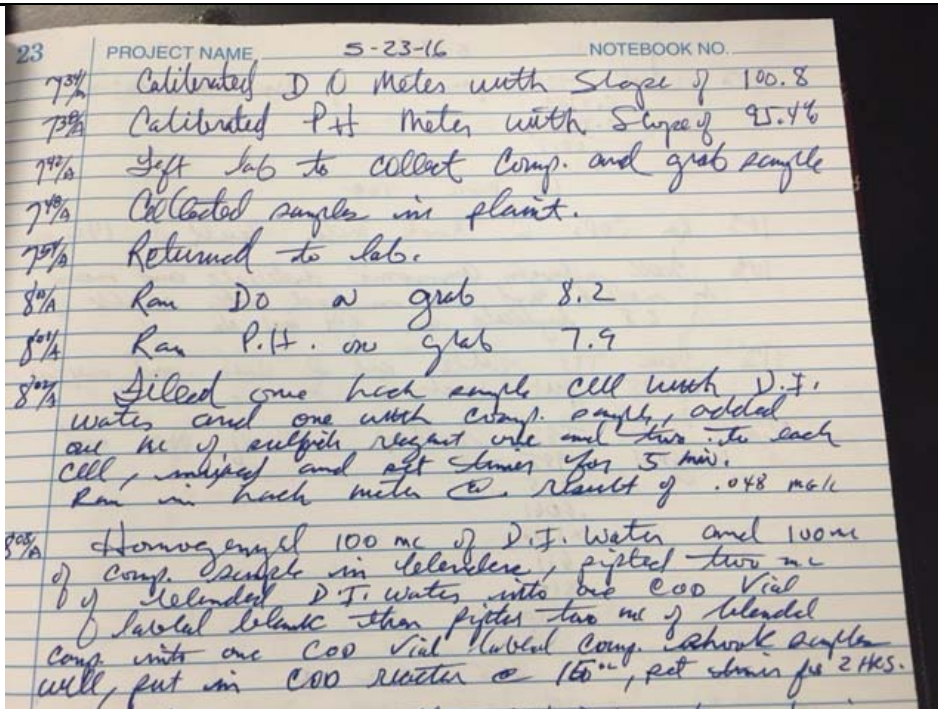 23 PROJECT NAME 5-23-16 NOTEBOOK NO.
Calibrated D O Meter with Slope of 100.8
Calibrated PH Meter with Slope of 95.4%
742/A Left lab to collect Comp. and grab sample
748/A Collected samples in plaint.
Returned to lab.
Ran DO on grab 8.2
801/A Ran P.H. on grab 7.9
802/A Filled one hach sample cell with D.I.
water and one with comp. sample, added
one ml of sulfide regent one and two to each
cell, mixed and set timer for 5 min.
Ran in hach meter @ result of .048 mg/l
Homogenized 100 ml of D.I. Water and 100 ml
of comp. sample in blender, pipted two ml
of blended D.I. water into one COD Vial
labled blank then pipter two ml of blended
comp. into one COD Vial labled comp. shook samples
well, put in COD reactor @ 150°, set timer for 2 HRS.